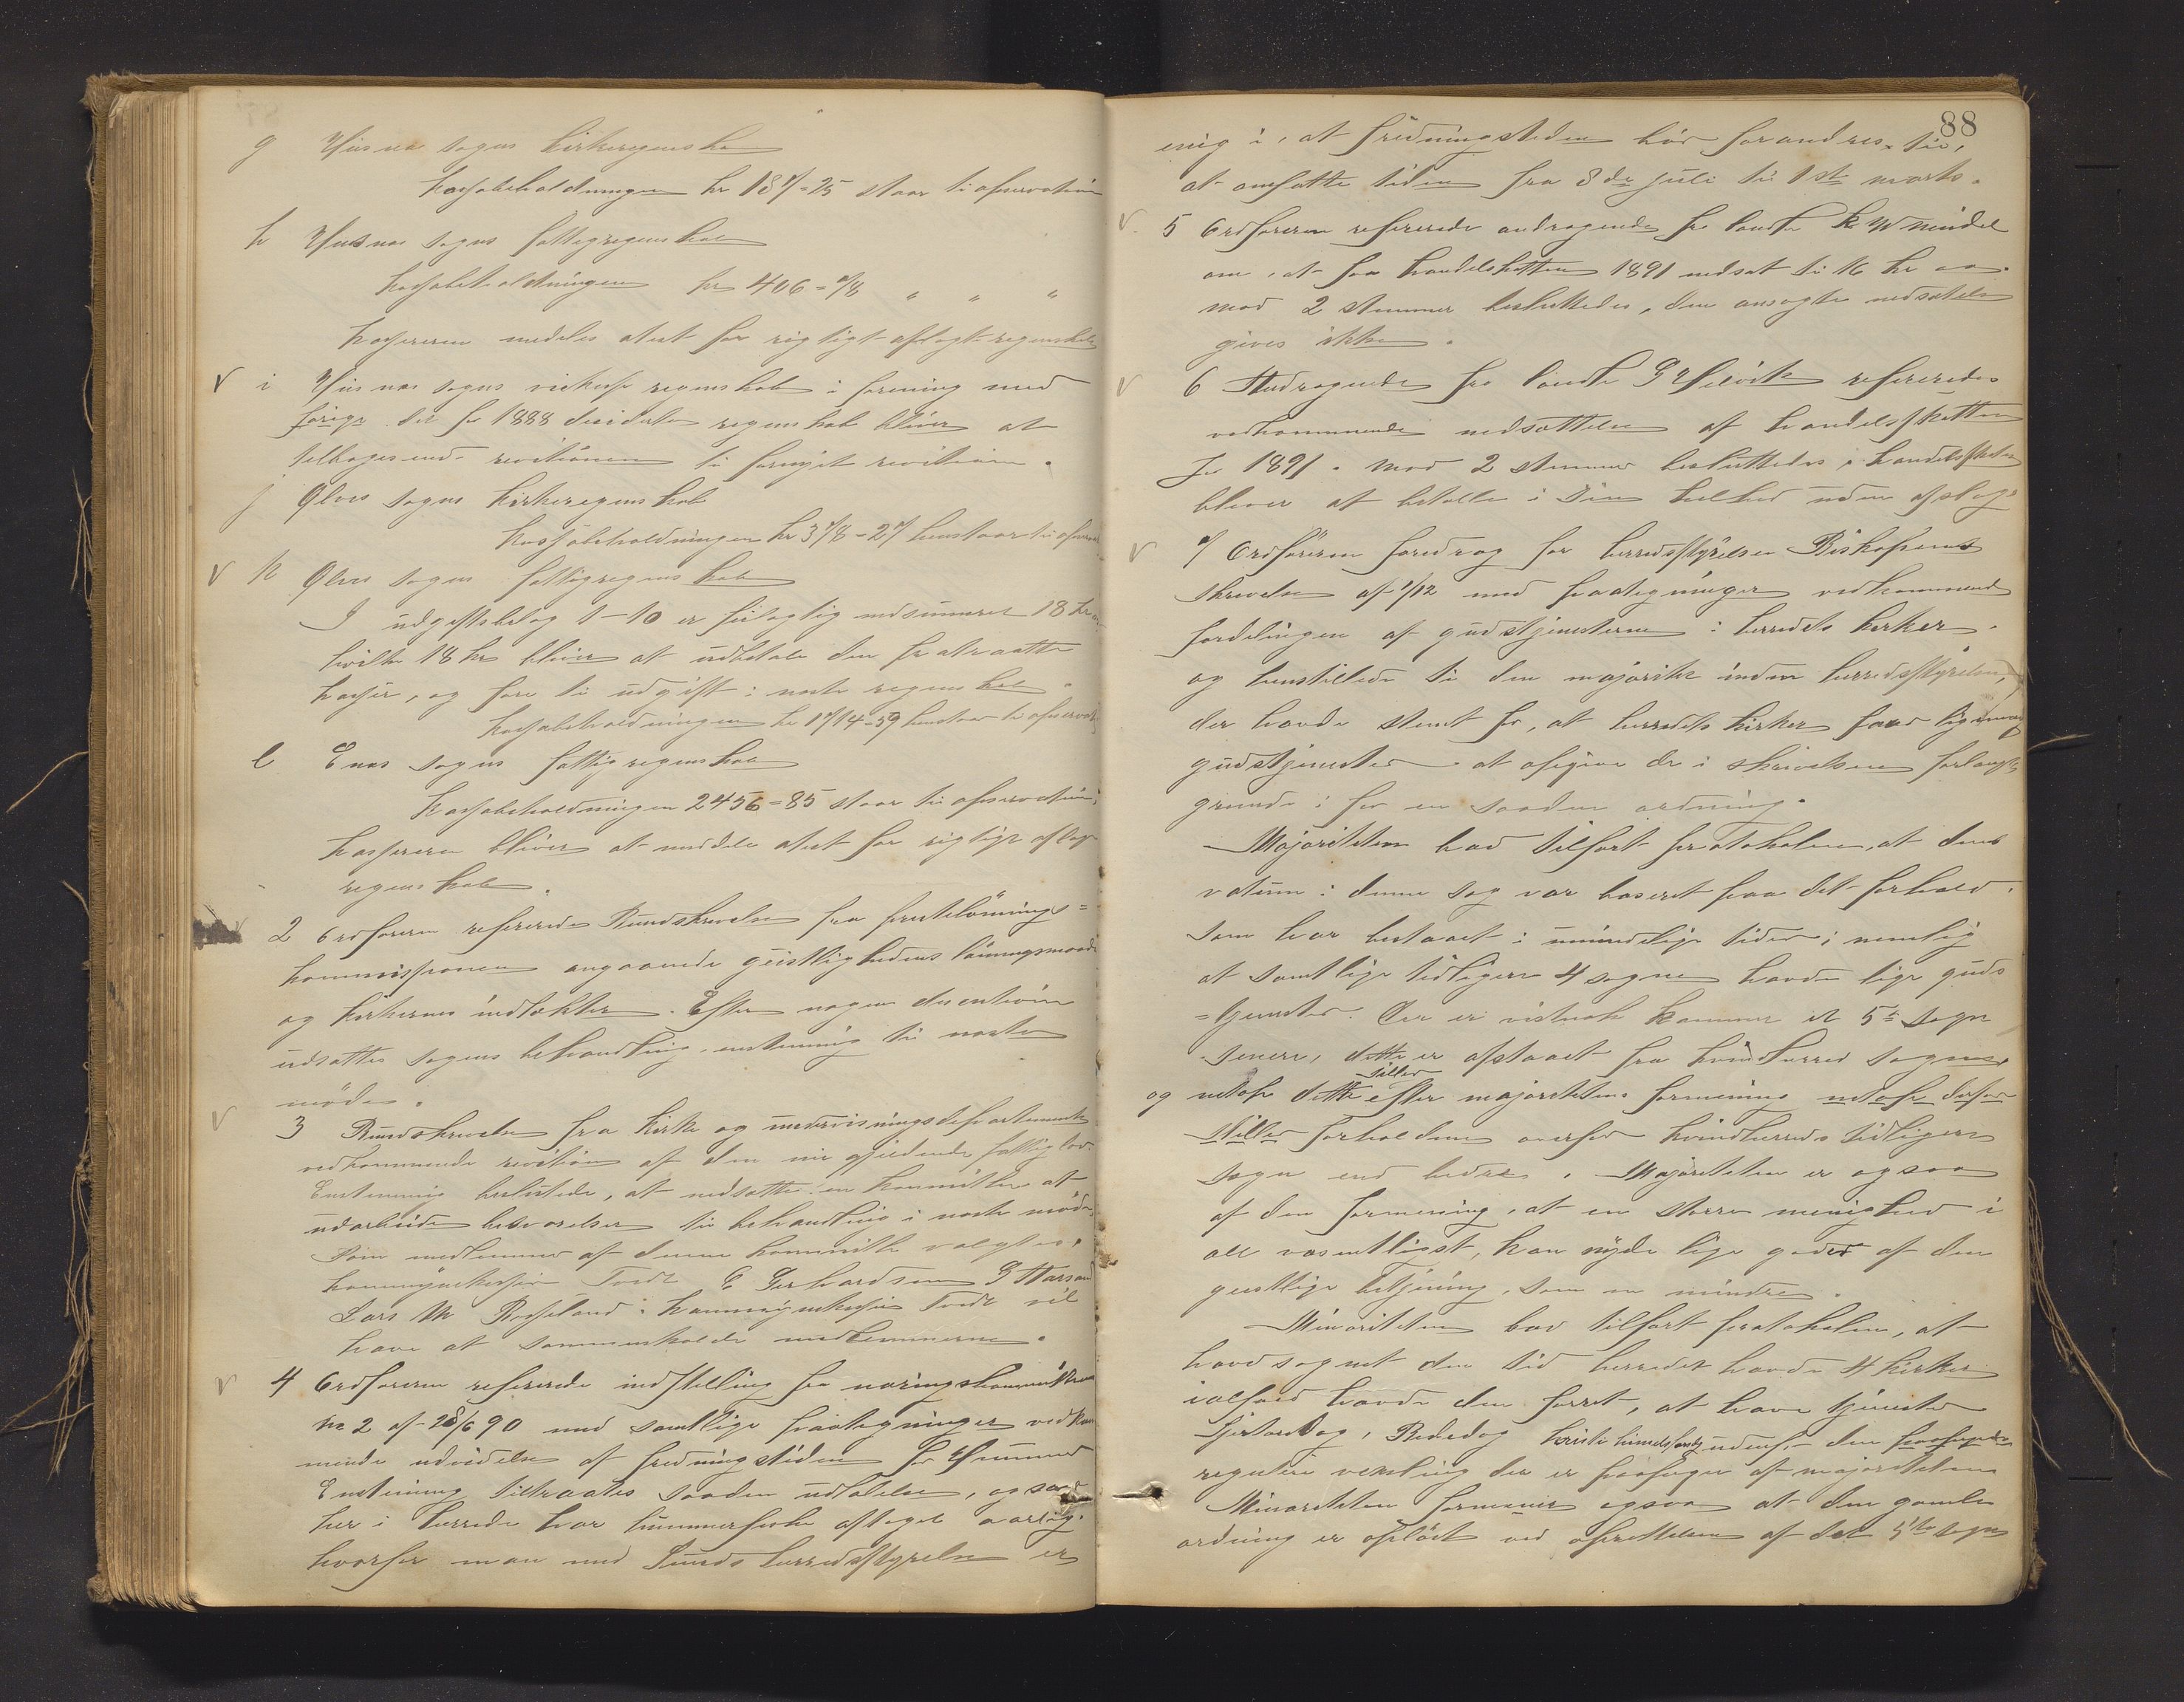 g Husnæs sogns kirkeregnskab
kassabeholdningen kr 187-25 staar til observation
h Husnæs sogns fattigregnskab
kassabeholdningen kr 406-78 " " "
kassereren meddeles atest for rigtigt aflagte regnskab
v i Husnæs sogns regnskab i forening med
forige det for 1888 desiderte regnskab bliver at
tilbagesend revitionen til fornyet revition.
j Ølves sogns kirkeregnskab
kassabeholdningen kr 378-27 henstaar til observat
v k Ølves sogns fattigregnskab
I udgiftsbelog 1-10 er feilagtig nedsummeret 18 kr
hvilke 18 kr bliver at udbetale den fratraatte
kasser, og føre til udgift i næste regnskab.
kassabeholdningen kr 1714-59 henstaar til observat
l Enæs sogns fattigregnskab
kassabeholdningen 2456-85 staar til observation,
kassereren bliver at meddele atest for rigtige aflagte
regnskab.
2 Ordføreren refererede Rundskrivelse fra presteløninges=
kommissionen angaaende geistlighedens lønningsmaade
og kirkernes indtækter. Efter nogen discution
udsattes sagens behandling enstemig til næste
møde.
v 3 Rundskrivelse fra kirke og undervisningsdepartementet
vedkommende revition af den nu gjeldende fattiglov.
Enstemmig beslutede, at nedsætte en kommitee at
udarbeide besvarelser til behandling i næste møde,
Som medlemmer af denne kommitte valgtes,
kommunekasser Tvedt E Gerhardsen G Harsand
Lars M Rosseland: kommunekasser Tvedt vil
have at sammenkalde medlemmerne.
v 4 Ordføreren refererede indstilling fra næringskommitteen
No 2 af 28/6 90 med samtlige paategninger vedkom
mende udvidelse af fredningstiden for Hummer
Enstemmig tiltraates saadan udtalelse, og saa
her i herrede har hummerfiske aftaget aarlig.
hvorfor man med Sunds herredsstyrelse er
88
enig i, at fredningstiden bør forandres til,
at omfatte tiden fra 8de juli til 1ste marts.
v 5 Ordføreren refererede andragende fra landh. K W Meidel
om, at faa handelskatten 1891 nedsat til 16 kr
mod 2 stemmer besluttedes, den ansøgte nedsættelse
gives ikke.
v 6 Andragende fra landh. G Hilvik refereredes
vedkommende nedsættelse af handelsskatten
for 1891. mod 2 stemmer besluttedes, handelsskatten
bliver at betalle i Sin helhed uden afslag.
v 7 Ordføreren foredrog for herredsstyrelsen Biskopens
skrivelse af 1/12 med paategninger vedkommende
fordelingen af gudstjenesterne i herredets kirker.
og henstillede til den majoritet inden herredsstyrelsen,
der havde stemt for, at herredets kirker faar lige mange
gudstjenester at afgive de i skrivelsen forlangte
grunde i for en saadan ordning.
Majoriteten bad tilført protokolen, at dens
votum i denne sag var baseret paa det forhold.
som har bestaaet i umindelige tider, nemlig
at samtlige tidligere 4 sogne havde lige guds
=tjenester. Der er vistnok kommet et 5te Sogn
senere, dette er afstaaet fra kvinherred sogn
stiller
og netop dette efter majoritetens formening netop derfor
stiller forholdene overfor kvindherreds tidligere
sogn end bedre. Majoriteten er ogsaa
af den formening, at en større menighed i
alt væsentligst, kan nyde lige goder af den
geistlige betjening, som en mindre.
Minoriteten bad tilført protokolen, at
hovdsognet den tid herredet havde 4 kirker
ialfald havde den forret, at have tjeneste
Skjertorsdag, Bededag kristi himmelfartsdag udenfor den paafungne
regulere veksling der er paafunget af majoriteten
Minoriteten formener ogsaa at den gamle
ordning er opløst ved oprettelsen af det 5te sogn